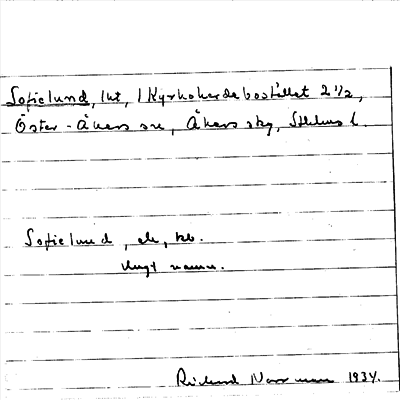 Sofielund, lht, 1 Kyrkoherdebostället 2 1/2,
Öster-Åkers sn, Åkers skg, Sthlms l.
Sofielund, ek, kb.
Ungt namn.
Rickard Norrman 1934.